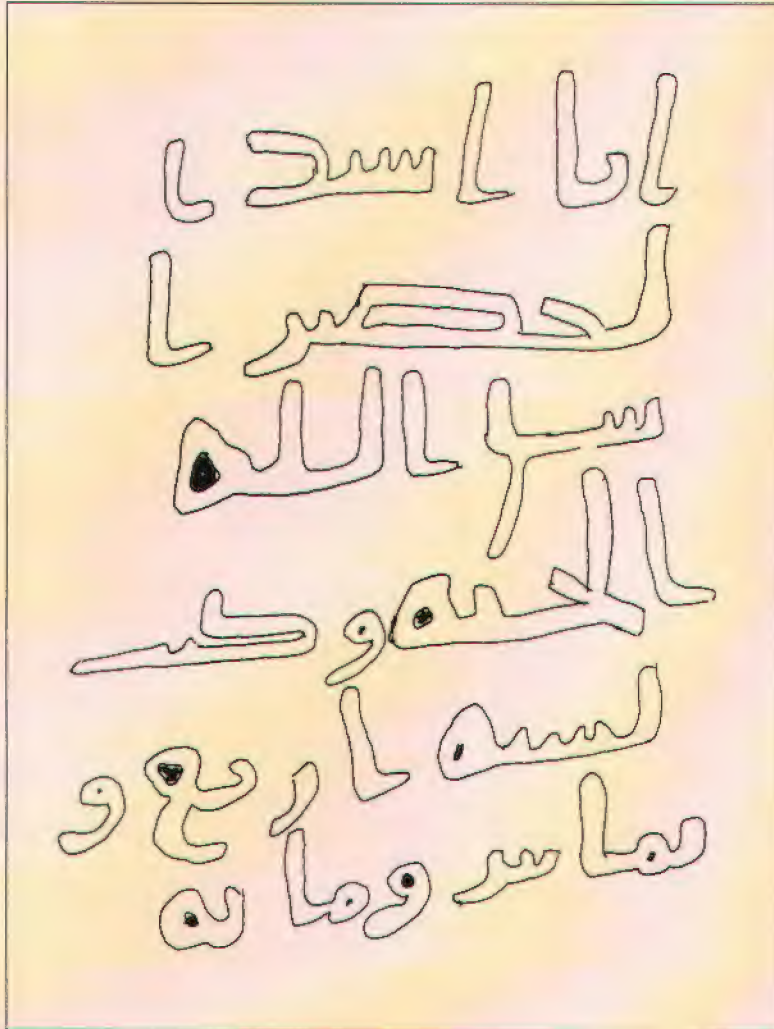 انا اسد ا
لحصين ا
سل الله ا
لجنه وكتب
لسنه اربع و
ثمانين ومائه